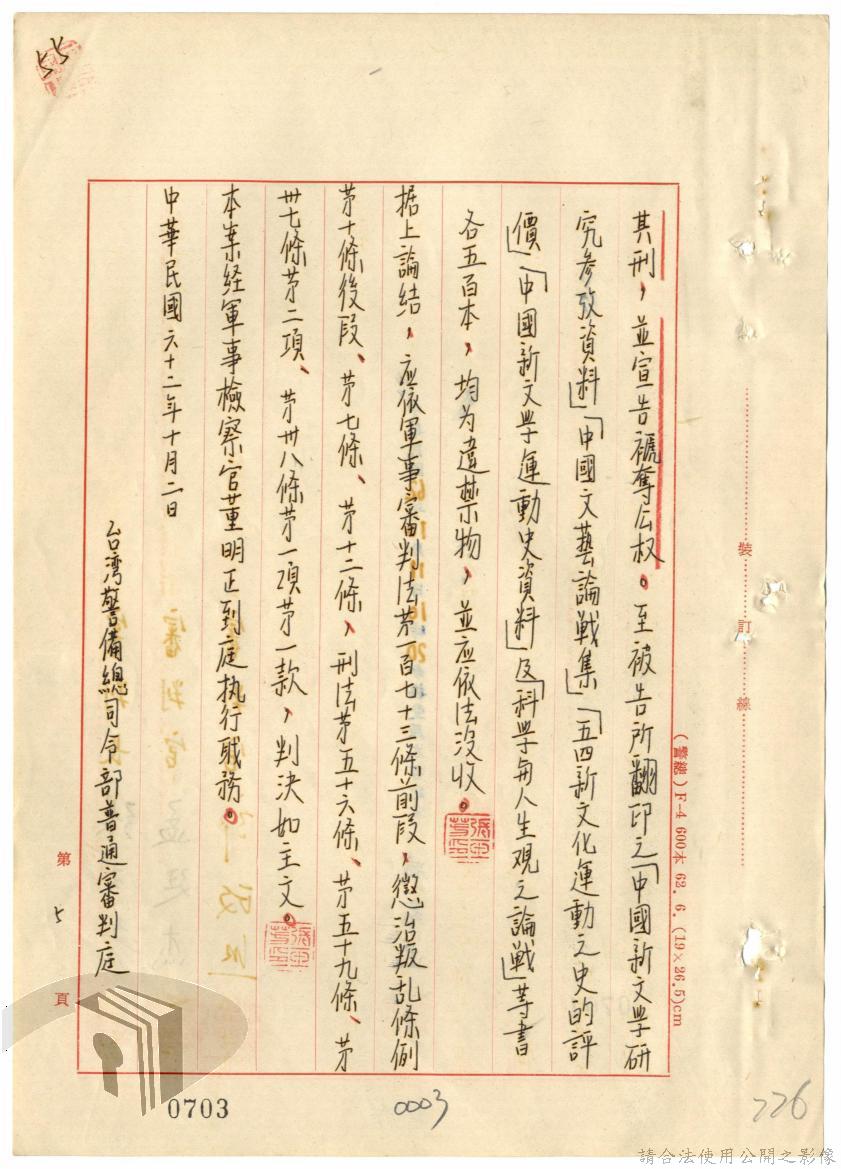 55
其刑，並宣告褫奪公权。至被告所翻印之「中國新文学研
究参攷資料」「中國文藝論战集」「五四新文化運動之史的評
價」「中國新文学運動史資料」及「科学与人生观之論战」等書
各五百本，均为違禁物，並应依法沒收。
据上論结，应依軍事審判法苐一百七十三條前段，懲治叛乱條例
苐十條後段、苐七條、苐十二條，刑法苐五十六條、苐五十九條、苐
卅七條苐二項、苐卅八條苐一項苐一款，判决如主文。
本案经軍事檢察官董明正到庭执行职務。
中華民國六十二年十月二日
台湾警備總司令部普通審判庭
第 5 頁
裝訂線
F-4 600本 62. 6. (19×26.5)cm
0703
0003
226
請合法使用公開之影像